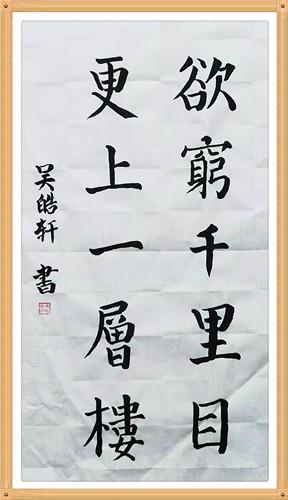 欲窮千里目
更上一層樓
吴皓轩書